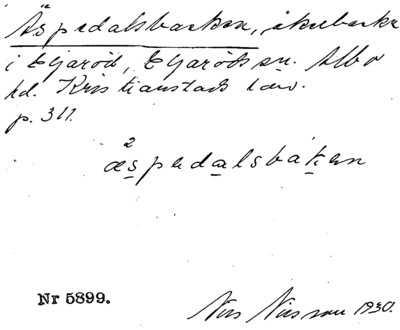 Äspedalsbacken, åkerbacke
i Eljaröd, Eljaröds sn. Albo
hd. Kristianstads län.
p. 311.
²
æspedalsbakan
Nr 5899.
Nils Nilsson 1930.